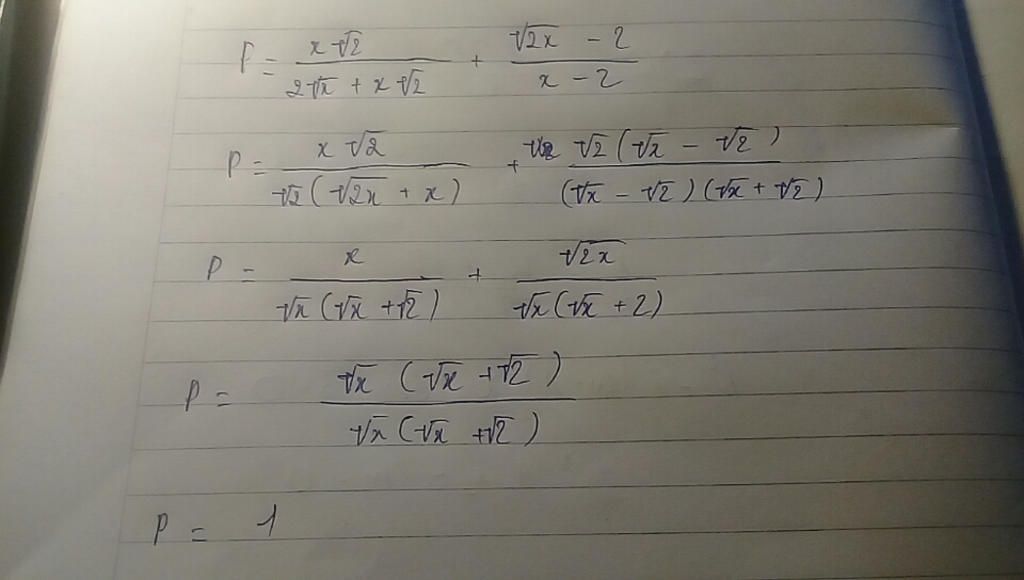 P = \frac{x\sqrt{2}}{2\sqrt{x} + x\sqrt{2}} + \frac{\sqrt{2x} - 2}{x - 2}
P = \frac{x\sqrt{2}}{\sqrt{2}(\sqrt{2x} + x)} + \frac{\sqrt{2}(\sqrt{x} - \sqrt{2})}{(\sqrt{x} - \sqrt{2})(\sqrt{x} + \sqrt{2})}
P = \frac{x}{\sqrt{x}(\sqrt{x} + \sqrt{2})} + \frac{\sqrt{2x}}{\sqrt{x}(\sqrt{x} + 2)}
P = \frac{\sqrt{x}(\sqrt{x} + \sqrt{2})}{\sqrt{x}(\sqrt{x} + \sqrt{2})}
P = 1